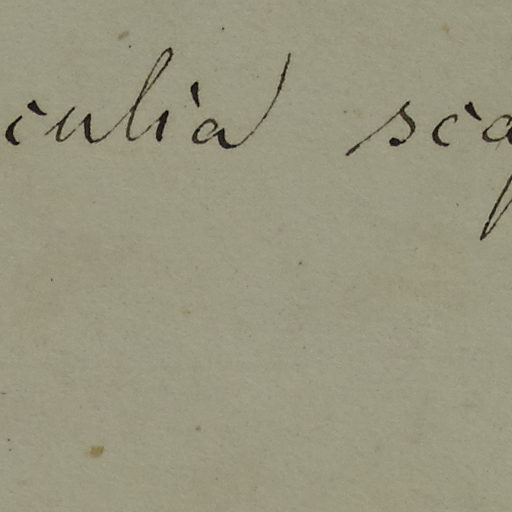 culia sca